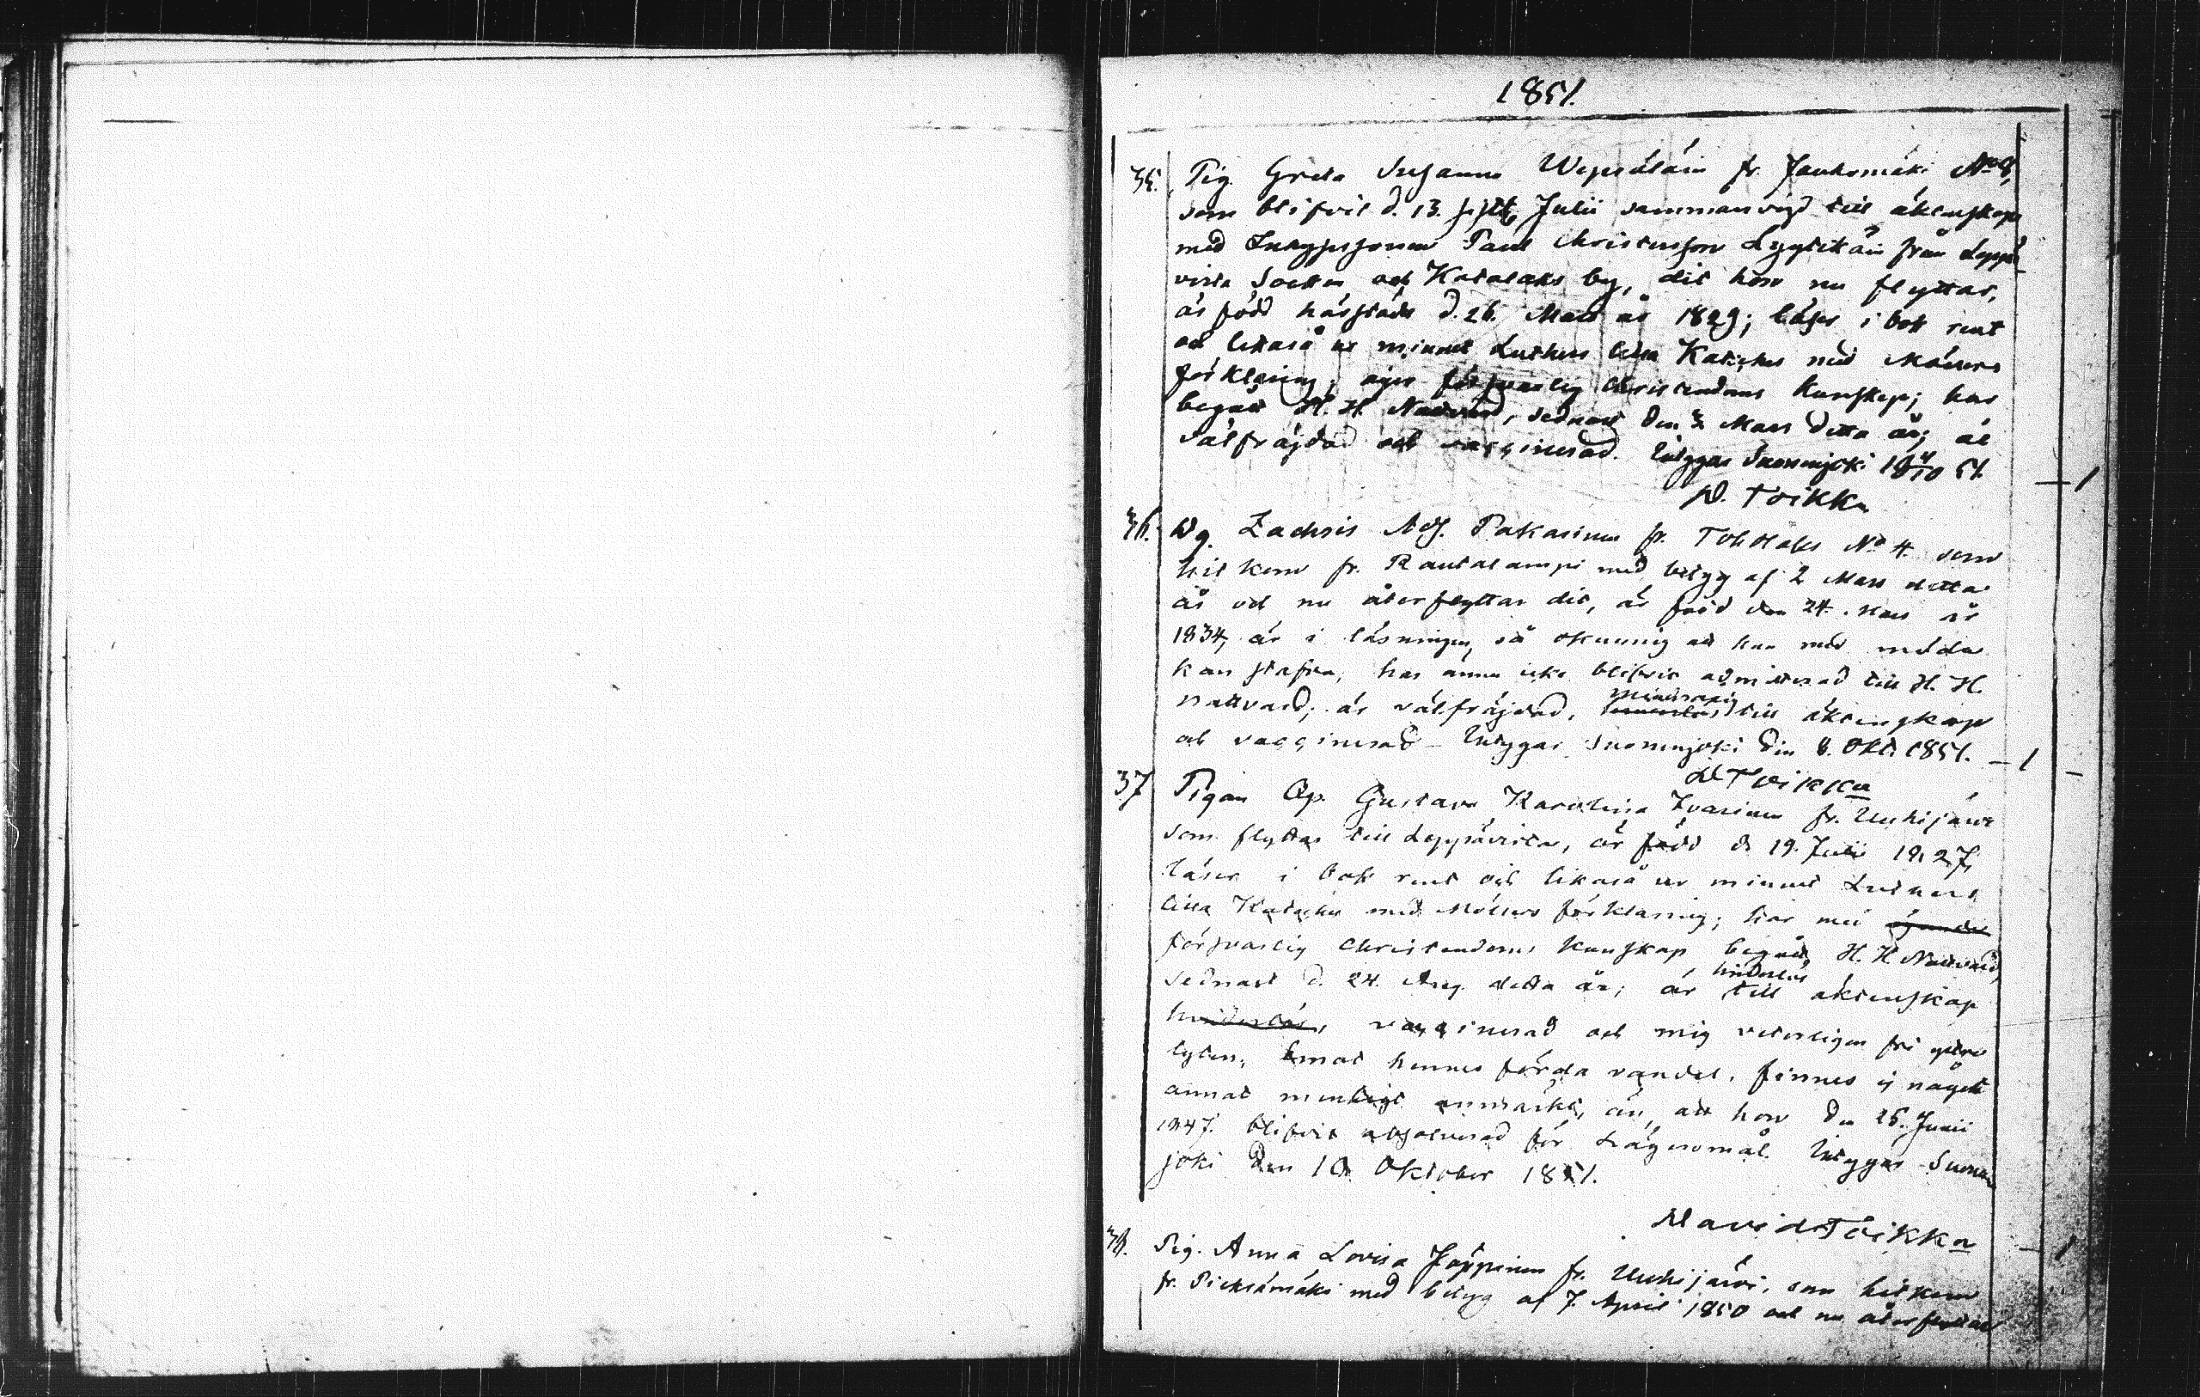 1851.
35. Pig. Greta Susanna Wepsäläin fr. Jauhomäki No 8,
som blifvit d. 13. sistl. Julii sammanvigd till äktenskap
med Inhysessonen Paul Christersson Lyytikäin från Leppä-
virta Socken och Kotalaks by, dit hon nu flyttar,
är född härstädes d. 26. Mars år 1829; läser i bok rent
och likaså ur minnet Luthers lilla Kateches med Möllers
förklaring; äger försvarlig christendoms kunskap; har
begått H. H. Nattvard, sednast den Mars detta år; är
välfräjdad och vaccinerad. Intygas Suonenjoki 18 4/10 51.
D. Toikka
36. Dg. Zachris Adf. Pakarinen fr. Toholaks No 4. som
hit kom fr. Rautalampi med betyg af 2 Mars detta
år och nu återflyttar dit, är född den 24. Mars år
1834, är i läsningen så okunnig att han med möda
kan stafva, har ännu icke blifvit admitterad till H. H.
nattvard; är välfräjdad, minderårig till äktenskap
och vaccinerad – Intygar Suonenjoki den 8. Okt. 1851. – 1 –
D Toikka
37 Pigan Gustava Karolina Ivarinen fr. Uuhijärvi
som flyttar till Leppävirta, är född d. 19. Julii 1827,
läser i bok rent och likaså ur minnet Luthers
lilla Kateches med Möllers förklaring; har med ägande
försvarlig christendoms kunskap begått H. H Nattvard,
sednast d. 24. Aug. detta år; är hinderlös till äktenskap
hinderlös, vaccinerad och mig veterligen fri yttre
lyten. Emot hennes förda vandel, finnes ej något
annat menligt anmärkt, än, att hon den 25. Junii
1847. blifvit absolverad för lägersmål. Intygas Suonen
joki den 10 Oktober 1851.
David Toikka
38. Pig. Anna Lovisa Jäppinen fr. Uuhijärvi, som hitkom
fr. Pieksämäki med betyg af 7. April 1850 och nu återflyttar